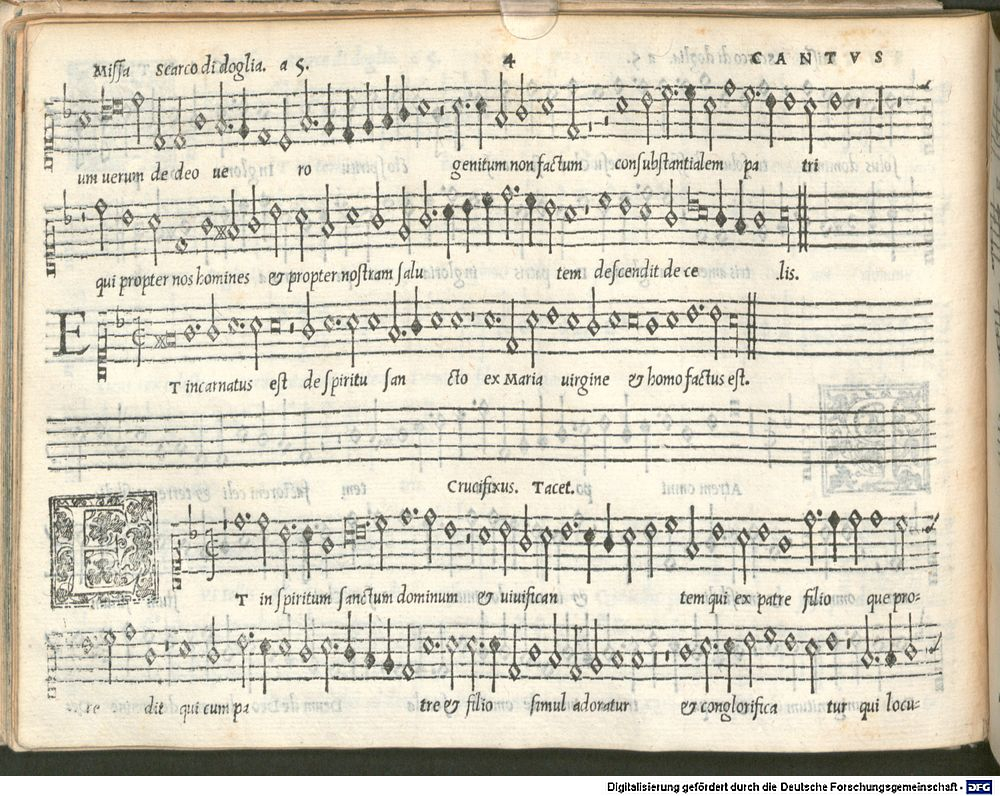 Missa Scarco di doglia. a 5. 4 CANTVS
um uerum de deo ue ro genitum non factum consubstantialem pa tri
qui propter nos homines & propter nostram salu tem descendit de ce lis.
E
T incarnatus est de spiritu san cto ex Maria uirgine & homo factus est.
Crucifixus. Tacet.
E
T in spiritum sanctum dominum & uiuifican tem qui ex patre filio que pro-
re dit qui cum pa tre & filio simul adoratur & conglorifica tur qui locu-
Digitalisierung gefördert durch die Deutsche Forschungsgemeinschaft - DFG